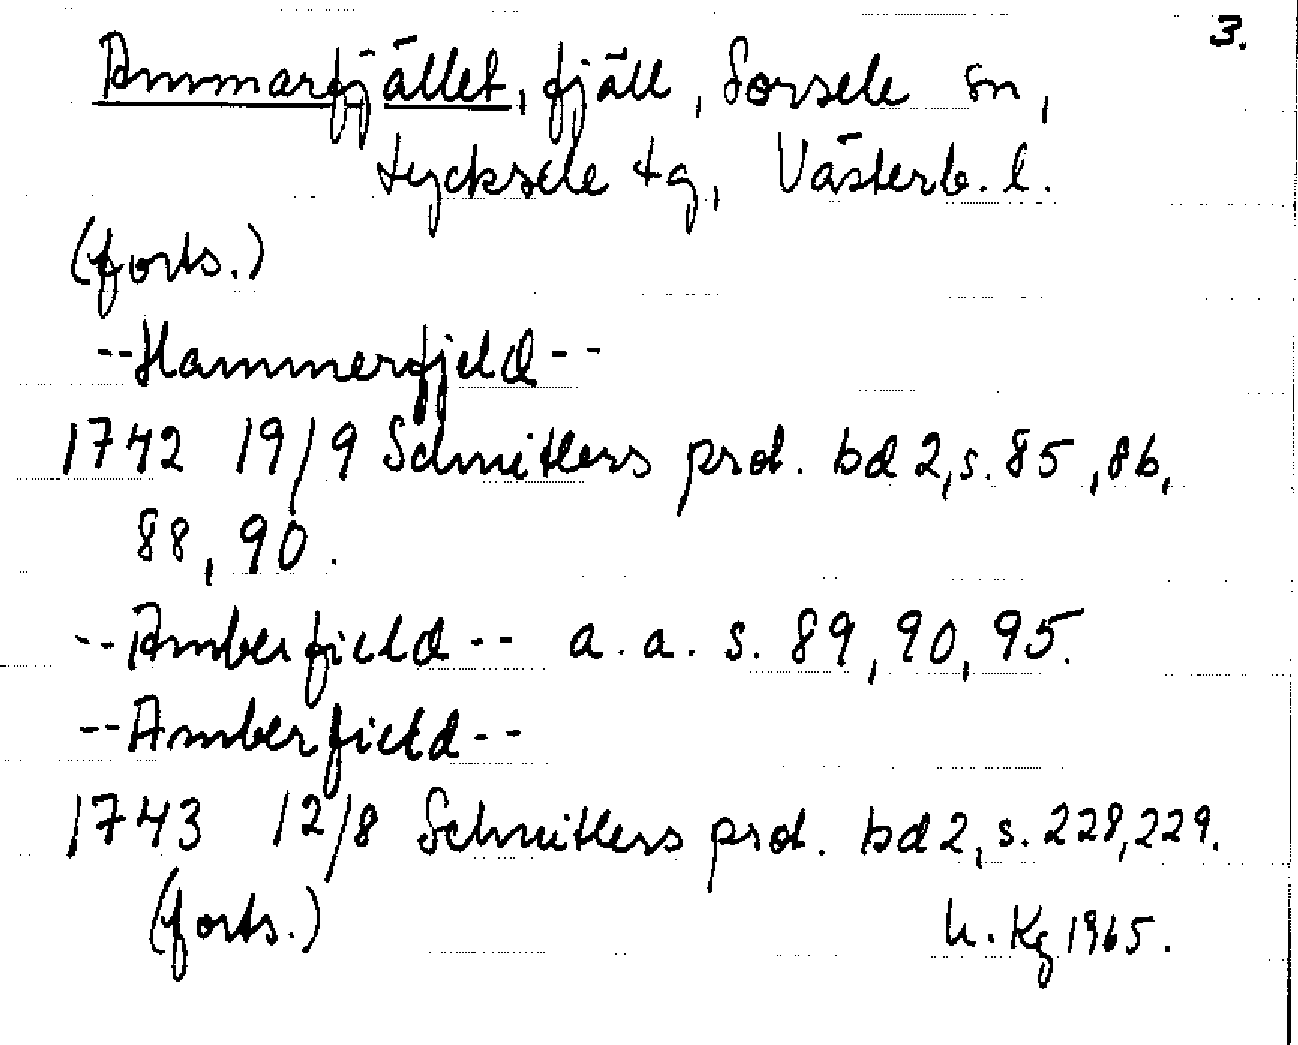 3.
Ammarfjället, fjäll, Sorsele sn,
Lycksele tg, Västerb. l.
(forts.)
--Hammerfjeld--
1742 19/9 Schnitlers prot. bd 2, s. 85, 86,
88, 90.
--Amberfield-- a. a. s. 89, 90, 95.
--Amberfield--
1743 12/8 Schnitlers prot. bd 2, s. 228, 229.
(forts.) U. Kg 1965.